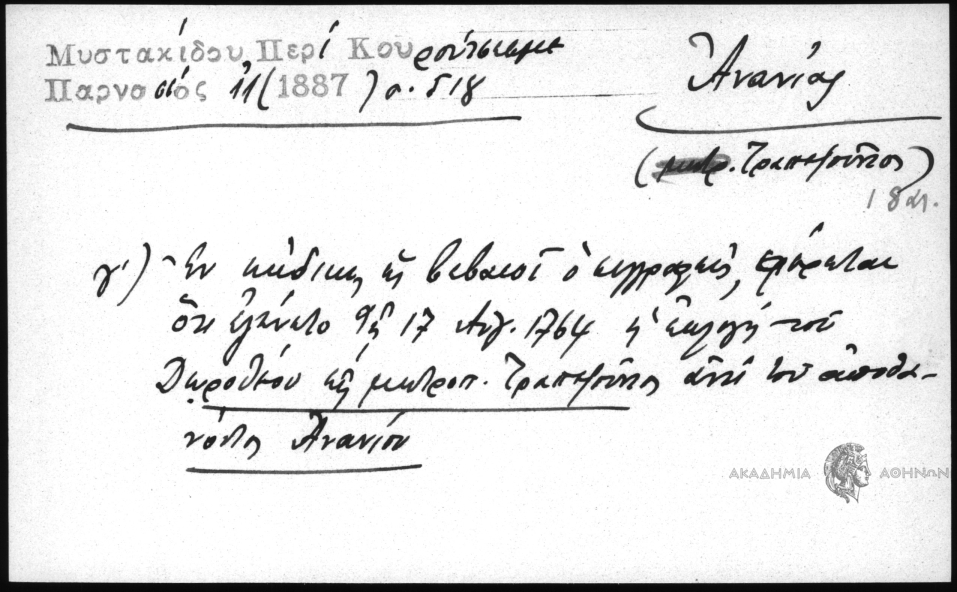 Μυστακίδου Περί Κουρούτσεσμε
Παρνασσός 11 (1887) σ. 518
Ἀνανίας
(μητρ. Τραπεζοῦντος)
γ') Ἐν κώδικι, ὡς βεβαιοῖ ὁ συγγραφεύς, φέρεται
ὅτι ἐγένετο τῇ 17 Αὐγ. 1764 ἡ ἐκλογή τοῦ
Δωροθέου εἰς μητροπ. Τραπεζοῦντος ἀντί τοῦ ἀποθα-
νόντος Ἀνανίου
ΑΚΑΔΗΜΙΑ ΑΘΗΝΩΝ